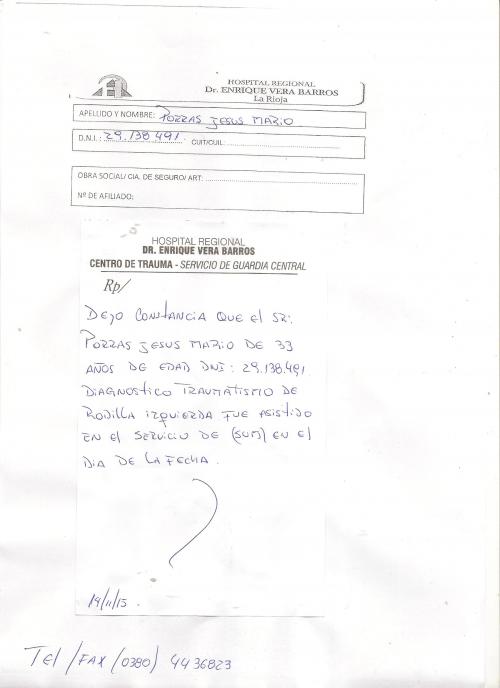 HOSPITAL REGIONAL
Dr. ENRIQUE VERA BARROS
La Rioja
APELLIDO Y NOMBRE: PORRAS JESUS MARIO
D.N.I.: 29.138.491 CUIT/CUIL:
OBRA SOCIAL/ CIA. DE SEGURO/ ART:
Nº DE AFILIADO:
HOSPITAL REGIONAL
DR. ENRIQUE VERA BARROS
CENTRO DE TRAUMA - SERVICIO DE GUARDIA CENTRAL
Rp/
DEJO CONSTANCIA QUE El SR:
PORRAS JESUS MARIO DE 33
AÑOS DE EDAD DNI: 29.138.491
DIAGNOSTICO TRAUMATISMO DE
RODILLA IZQUIERDA FUE ASISTIDO
EN El SERVICIO DE (SUM) EN El
DIA DE LA FECHA.
19/11/15.
TEl /FAX (0380) 4436823